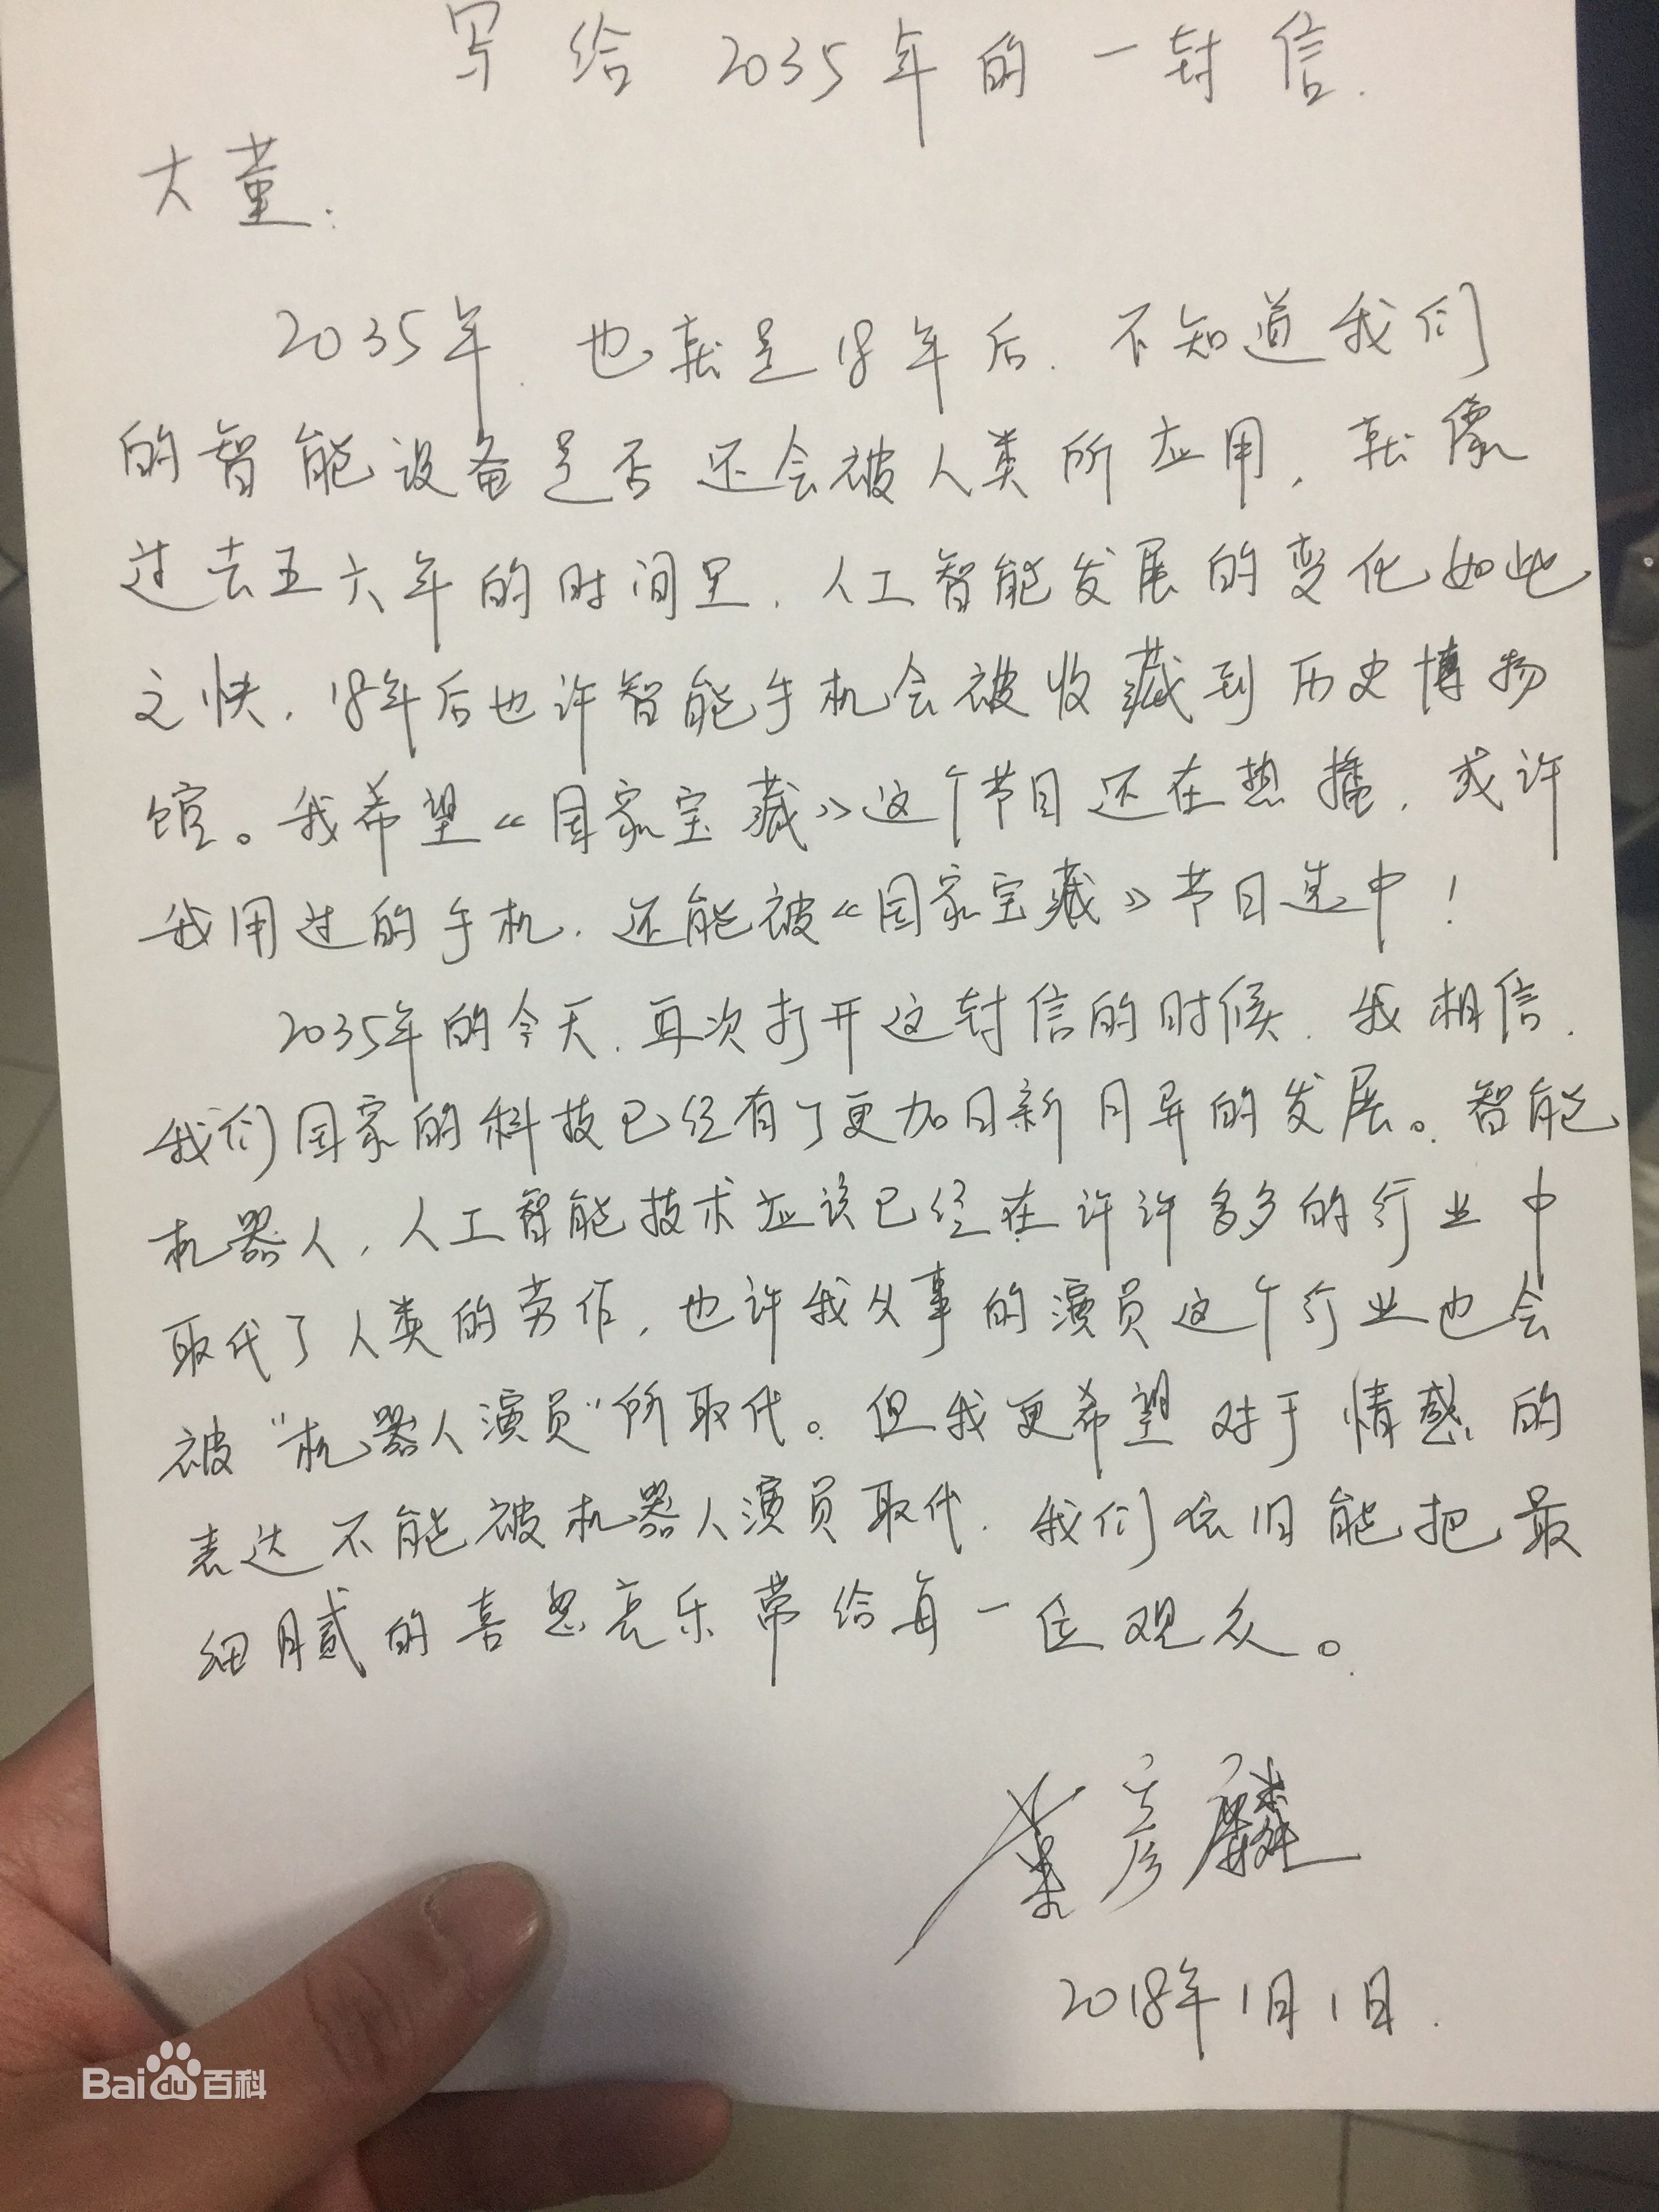 写给2035年的一封信.
大董:
2035年.也就是18年后.不知道我们
的智能设备是否还会被人类所应用,就像
过去五六年的时间里.人工智能发展的变化如此
之快,18年后也许智能手机会被收藏到历史博物
馆。我希望《国家宝藏》这个节目还在热播.或许
我用过的手机.还能被《国家宝藏》节目选中!
2035年的今天.再次打开这封信的时候.我相信.
我们国家的科技已经有了更加日新月异的发展。智能
机器人,人工智能技术应该已经在许许多多的行业中
取代了人类的劳作,也许我从事的演员这个行业也会
被"机器人演员"所取代。但我更希望对于情感的
表达不能被机器人演员取代.我们依旧能把最
细腻的喜怒哀乐带给每一位观众。
董彦麟
2018年1月1日.
Baidu百科